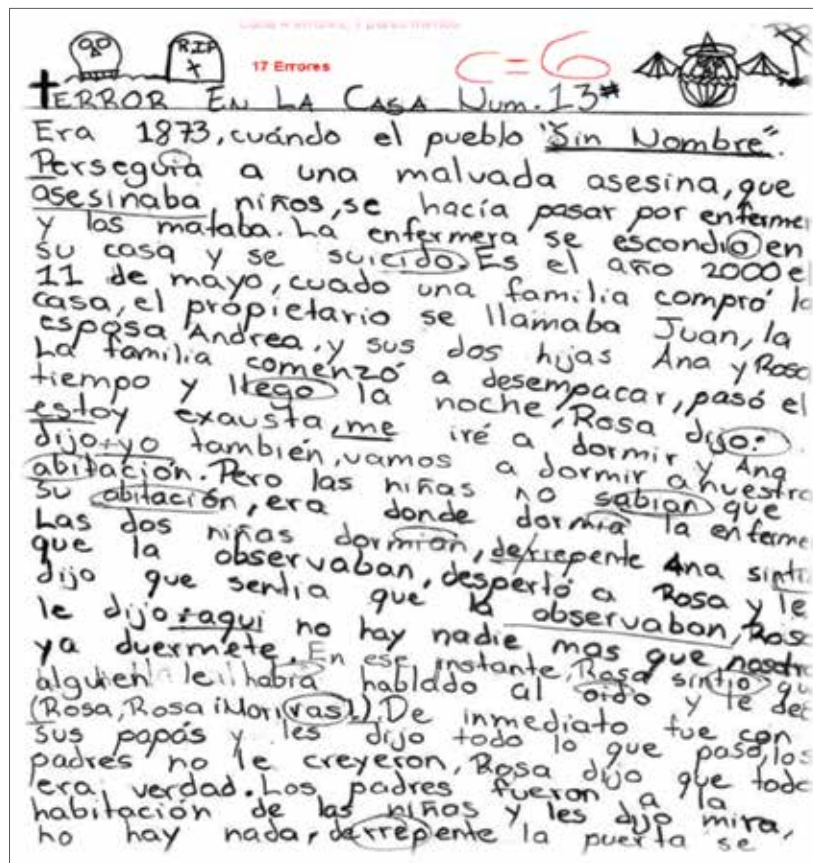 R.I.P
17 Errores
C=6
TERROR EN LA CASA Num. 13#
Era 1873, cuándo el pueblo "Sin Nombre".
Perseguia a una malvada asesina, que
asesinaba niños, se hacía pasar por enferme
y los mataba. La enfermera se escondio en
su casa y se suicido. Es el año 2000 e
11 de mayo, cuado una familia compró l
casa, el propietario se llamaba Juan, la
esposa Andrea, y sus dos hijas Ana y Rosa
La familia comenzó a desempacar, pasó el
tiempo y llego la noche, Rosa dijo:
estoy exausta, me iré a dormir y Ana
dijo: yo también, vamos a dormir a nuestra
abitación. Pero las niñas no sabian que
su abitación, era donde dormia la enferme
Las dos niñas dormian, derrepente Ana sinti
que la observaban, despertó a Rosa y le
dijo que sentia que la observaban, Rosa
le dijo: aqui no hay nadie mas que nosotr
ya duermete. En ese instante, Rosa sintio qu
alguien le habia hablado al oido y le dec
(Rosa, Rosa ¡Morivas!). De inmediato fue con
sus papás y les dijo todo lo que paso, los
padres no le creyeron, Rosa dijo que todo
era verdad. Los padres fueron a la
habitación de las niñas y les dijo mira,
no hay nada, derrepente la puerta se